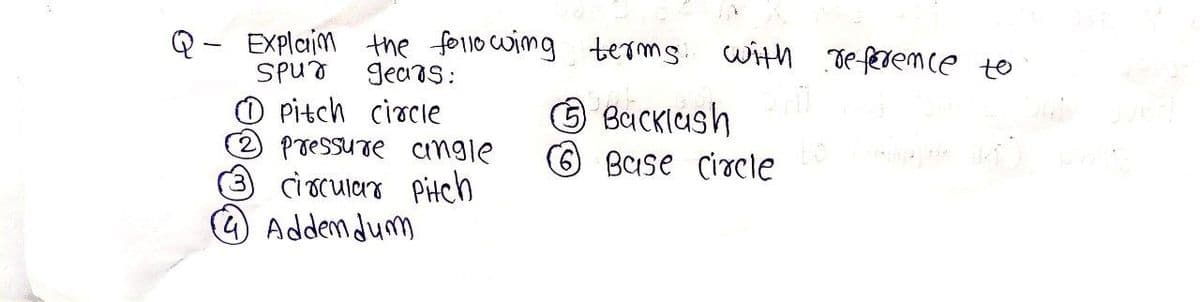 Q - Explain the following terms with reference to
spur gears:
① Pitch circle
② Pressure angle
③ circular Pitch
④ Addendum
⑤ Backlash
⑥ Base circle